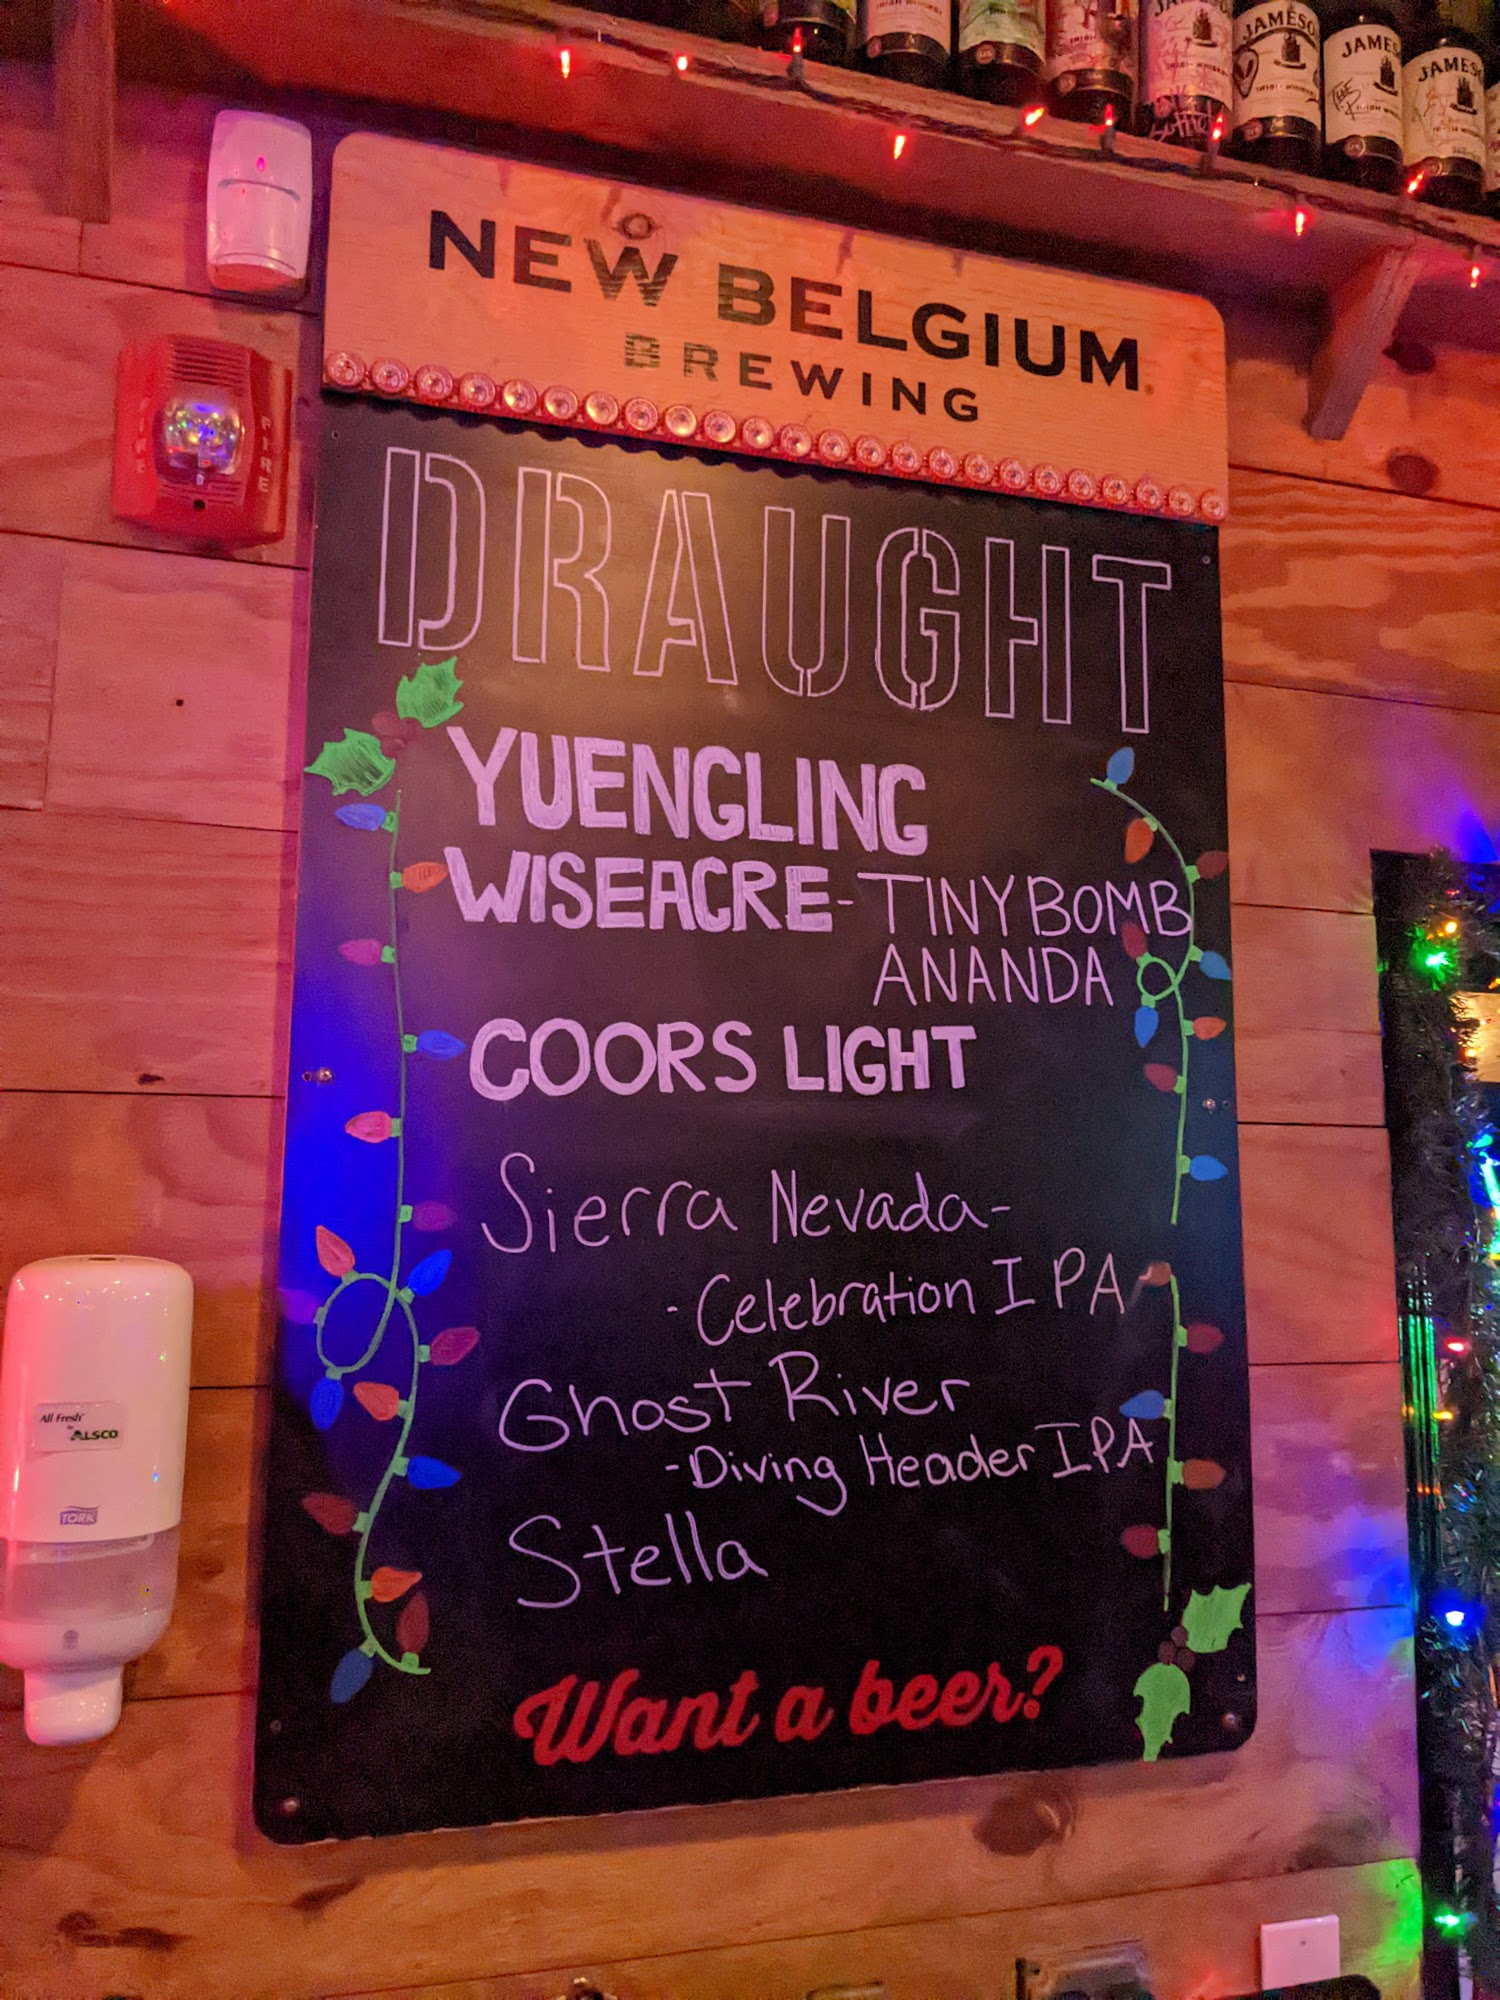 JAMESON
JAMES
JAMES
NEW BELGIUM
BREWING
FIRE
FIRE
DRAUGHT
YUENGLING
WISEACRE - TINY BOMB
ANANDA
COORS LIGHT
Sierra Nevada -
- Celebration IPA
Ghost River
- Diving Header IPA
Stella
Want a beer?
All Fresh
by
ALSCO
TORK